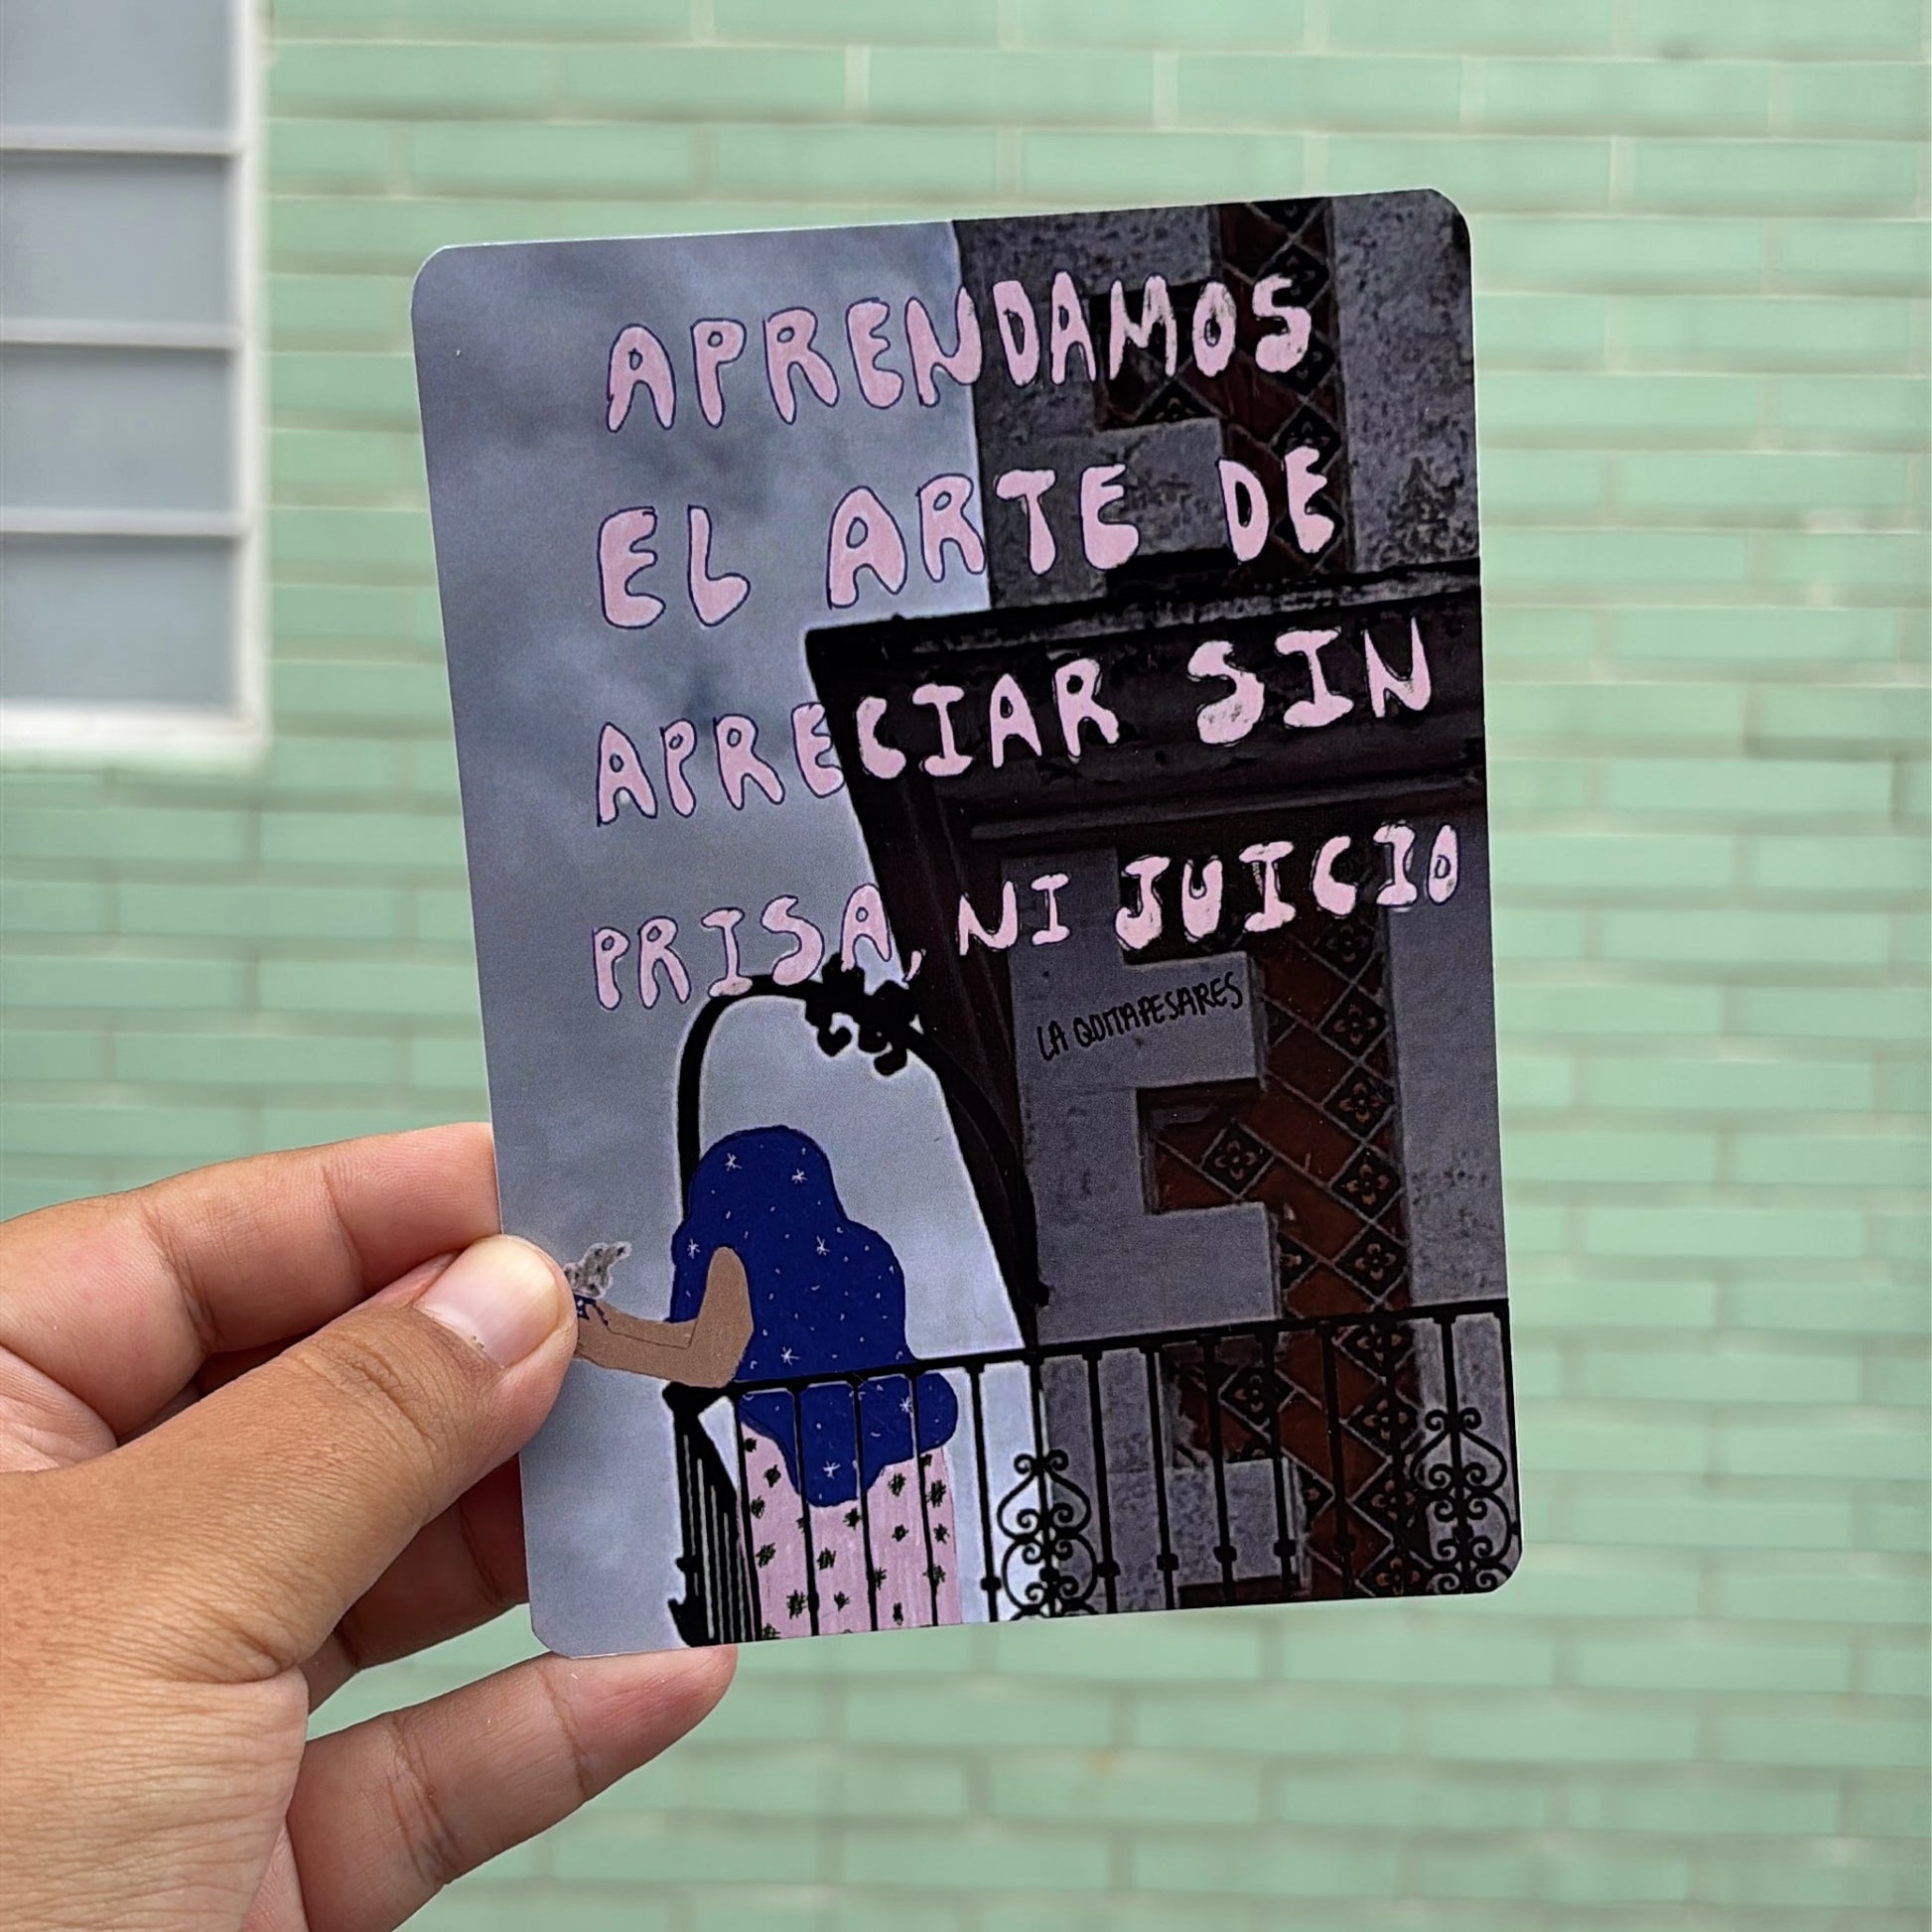 APRENDAMOS
EL ARTE DE
APRECIAR SIN
PRISA, NI JUICIO
LA QUITAPESARES